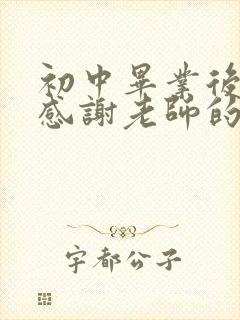 初中畢業後
感謝老師的
宇都公子